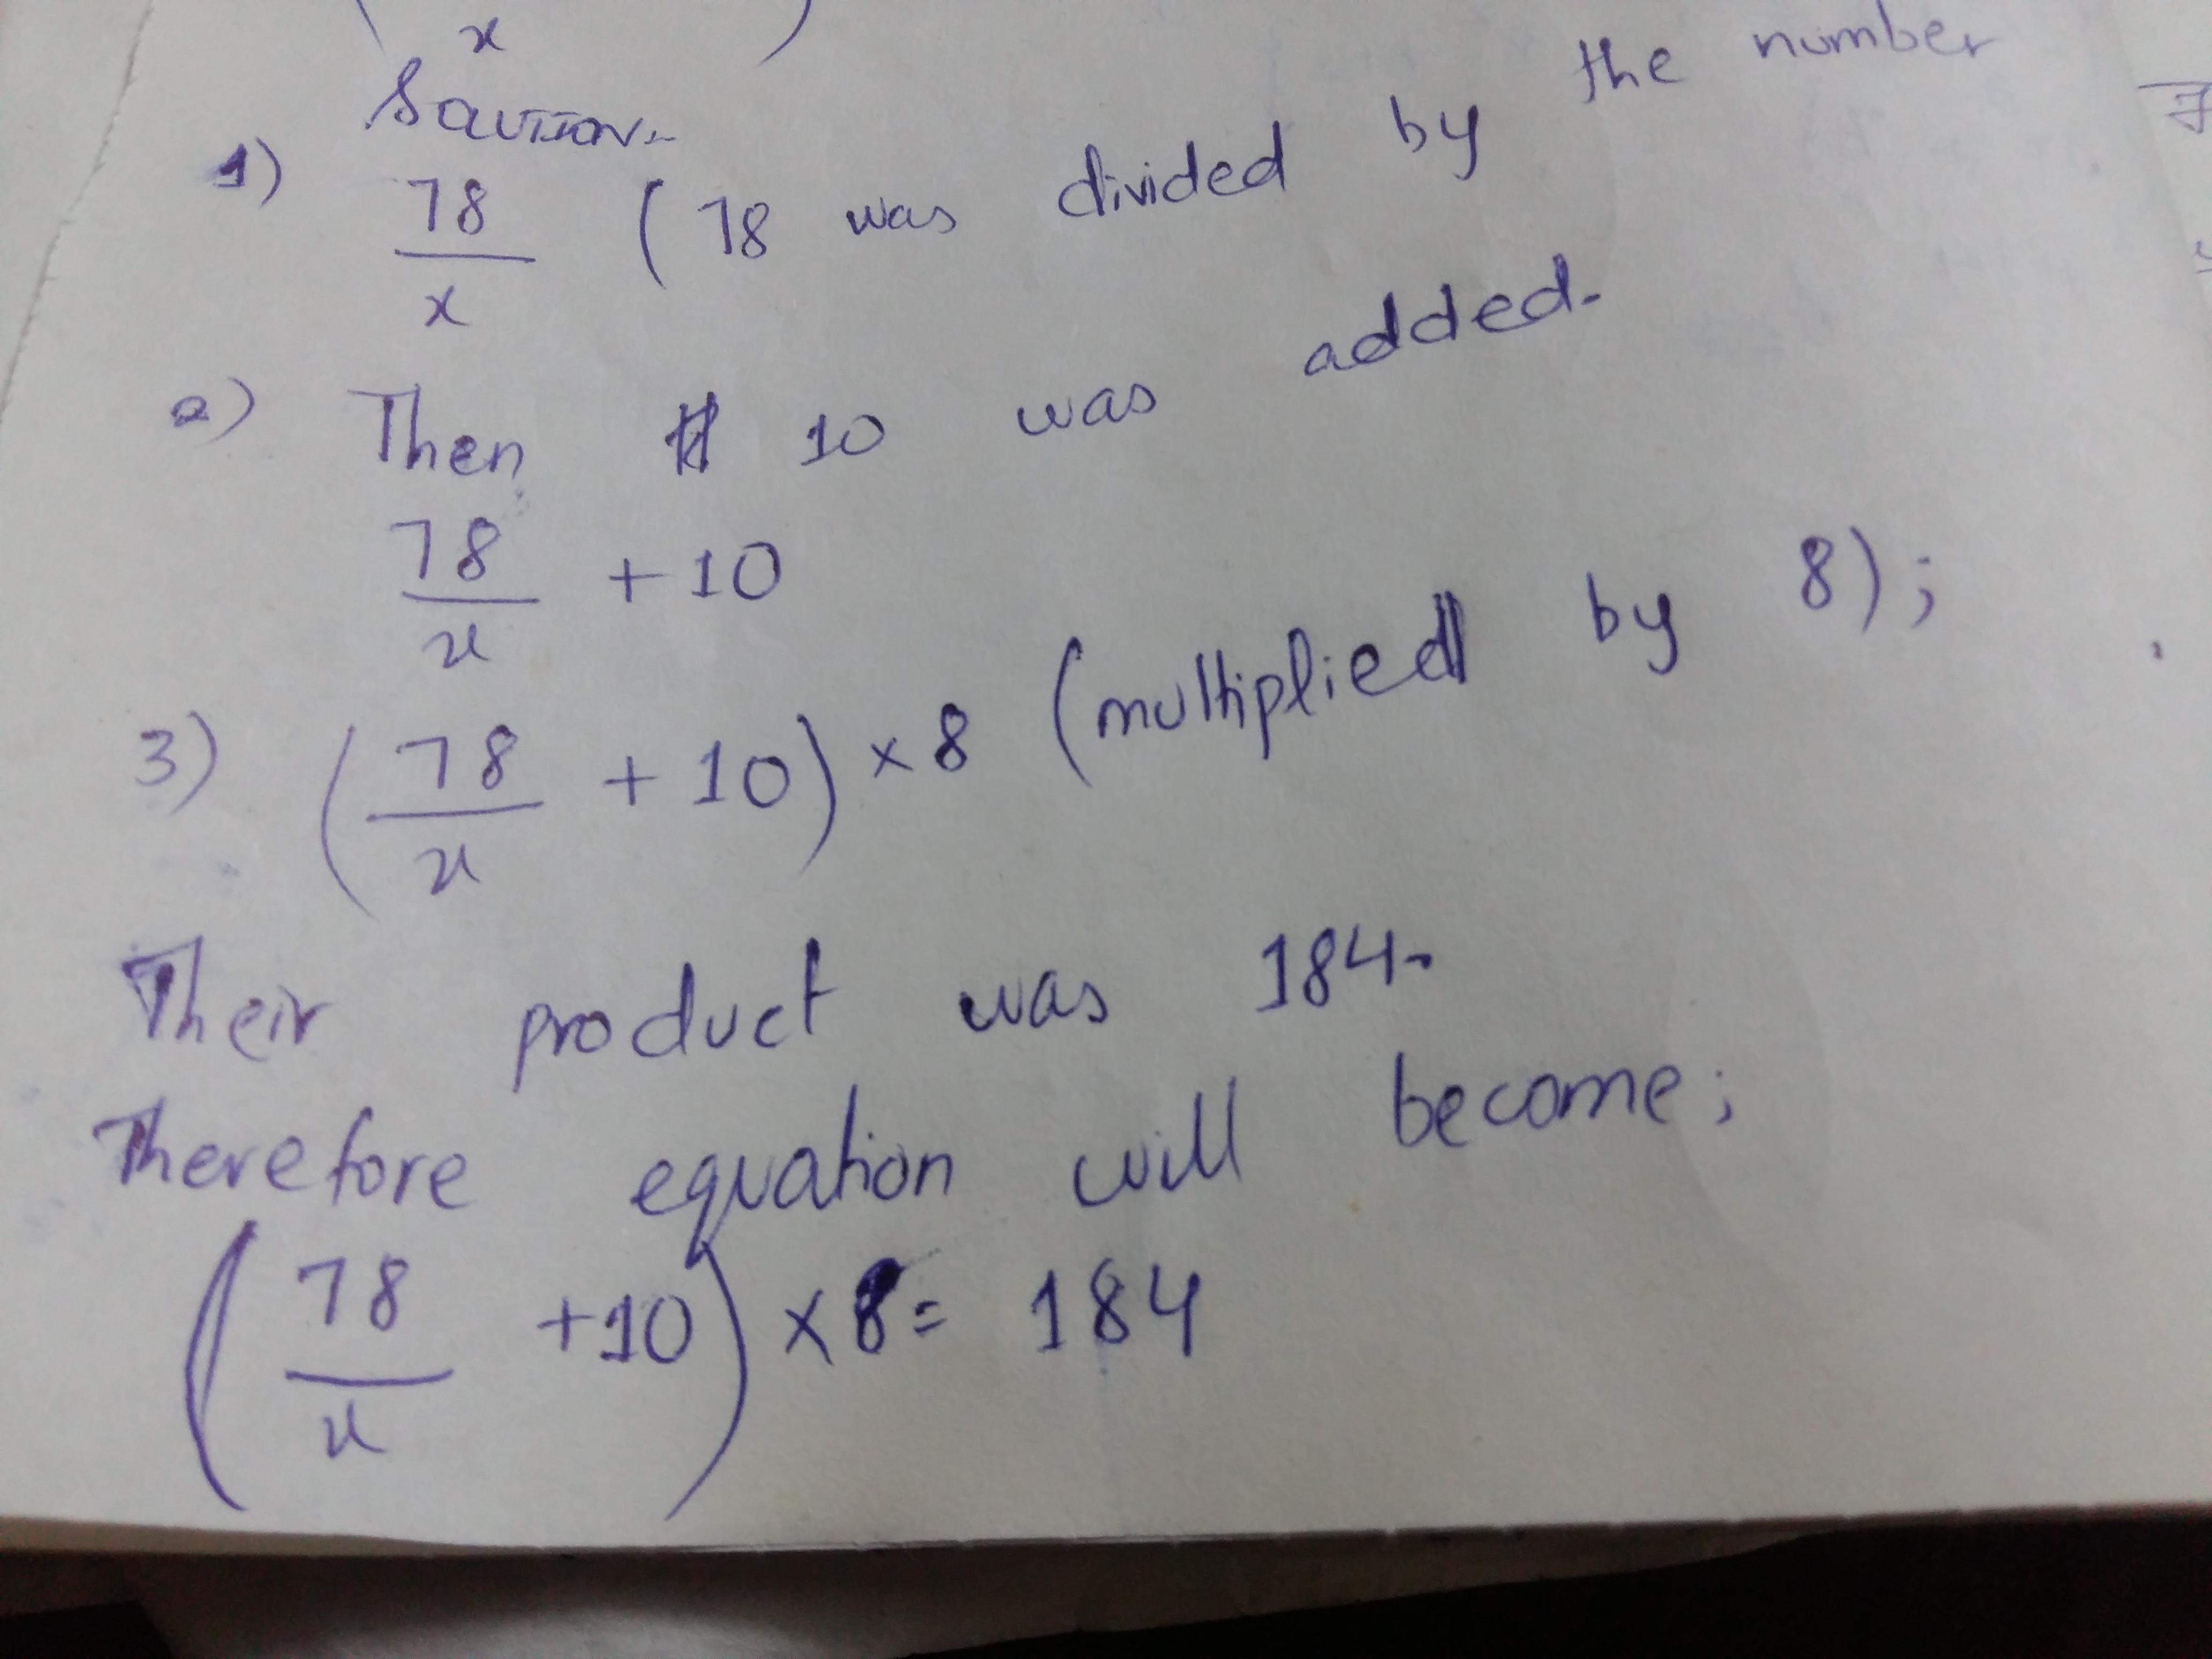 x
Solution-
1) 78/x (78 was divided by the number
2) Then 10 was added-
78/x +10
3) (78/x + 10) ×8 (multiplied by 8);
Their product was 184-
Therefore equation will become;
(78/x +10) ×8= 184